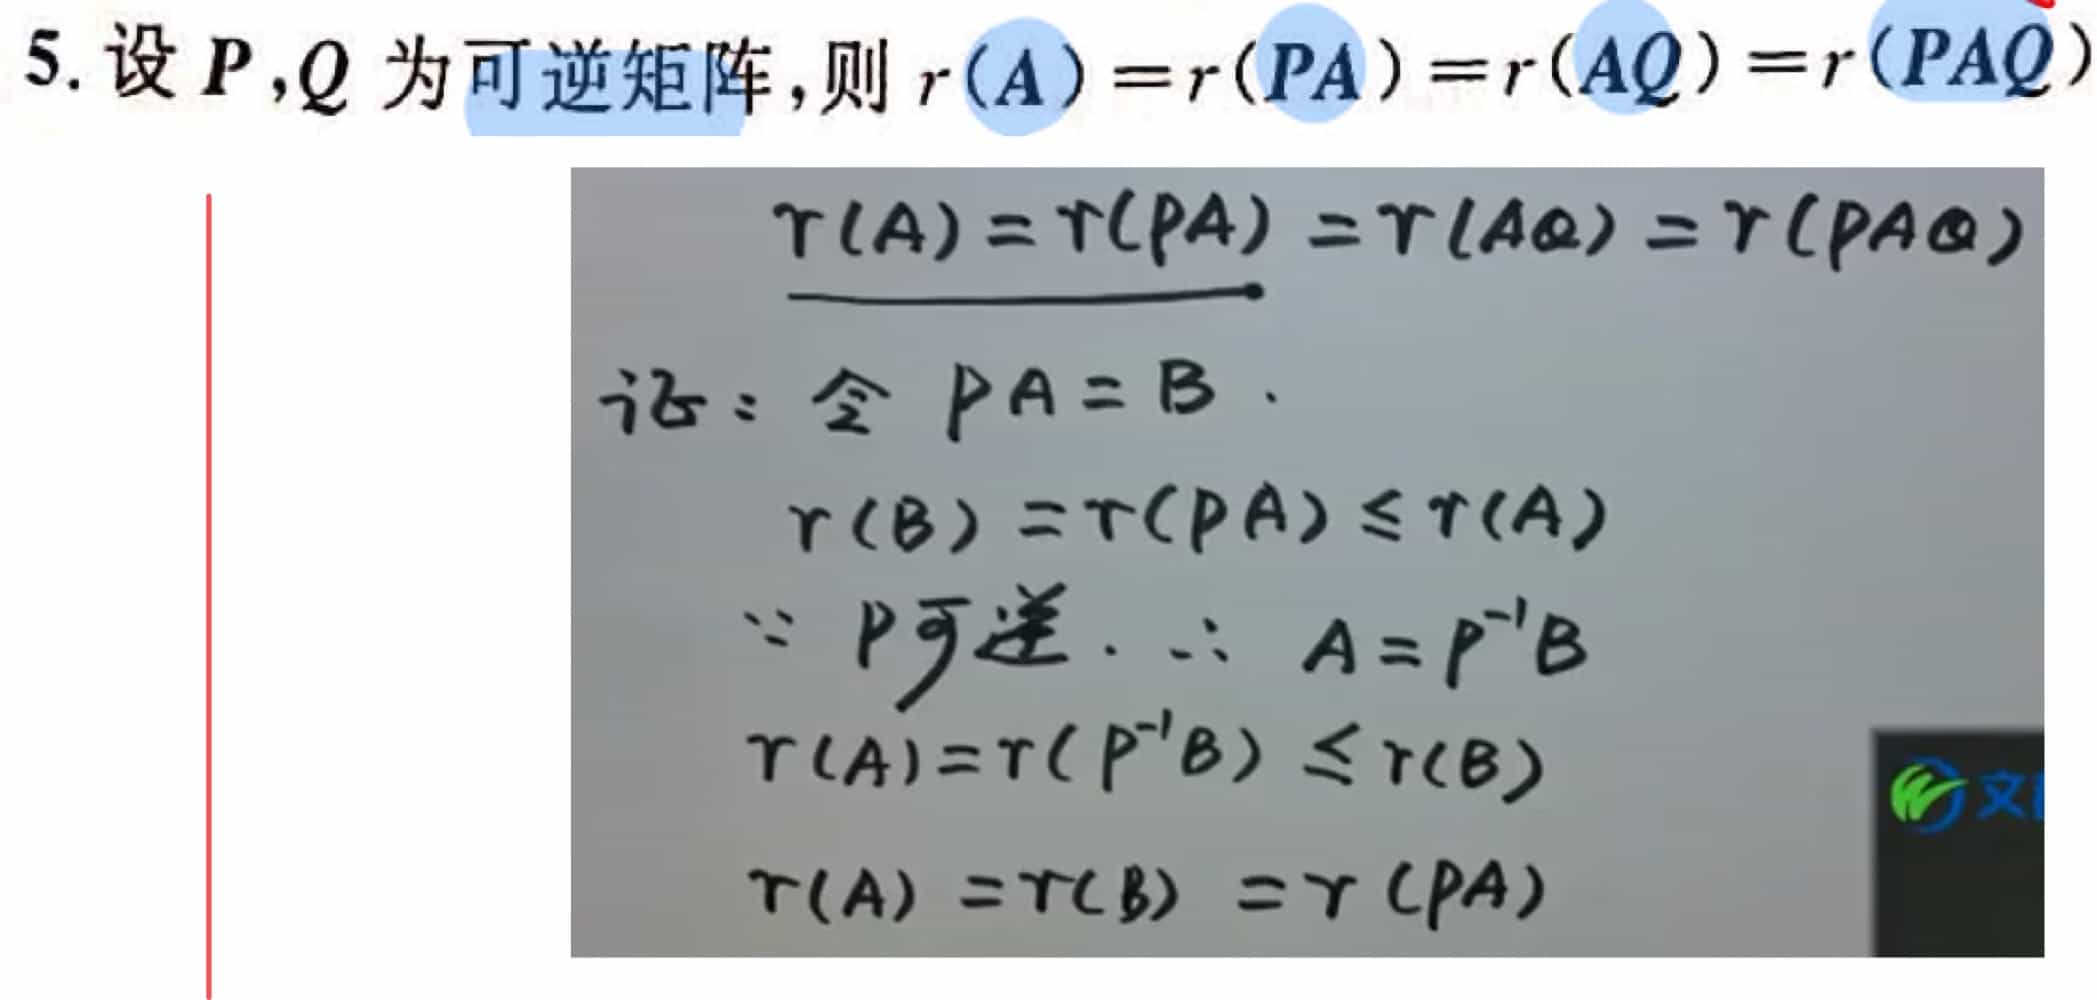 5. 设 P,Q 为可逆矩阵,则 r(A)=r(PA)=r(AQ)=r(PAQ)
r(A)=r(PA)=r(AQ)=r(PAQ)
证: 令 PA=B.
r(B)=r(PA)≤r(A)
∵ P可逆. ∴ A=P⁻¹B
r(A)=r(P⁻¹B)≤r(B)
文
r(A)=r(B)=r(PA)